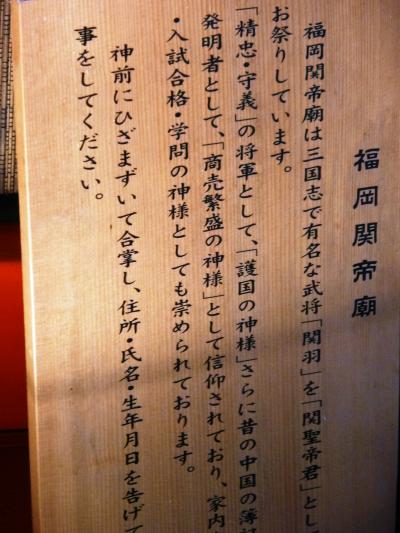 福岡関帝廟
福岡関帝廟は三国志で有名な武将「関羽」を「関聖帝君」とし
お祭りしています。
「精忠・守義」の将軍として、「護国の神様」さらに昔の中国の簿
発明者として、「商売繁盛の神様」として信仰されており、家内
・入試合格・学問の神様としても崇められております。
神前にひざまずいて合掌し、住所・氏名・生年月日を告げて
事をしてください。